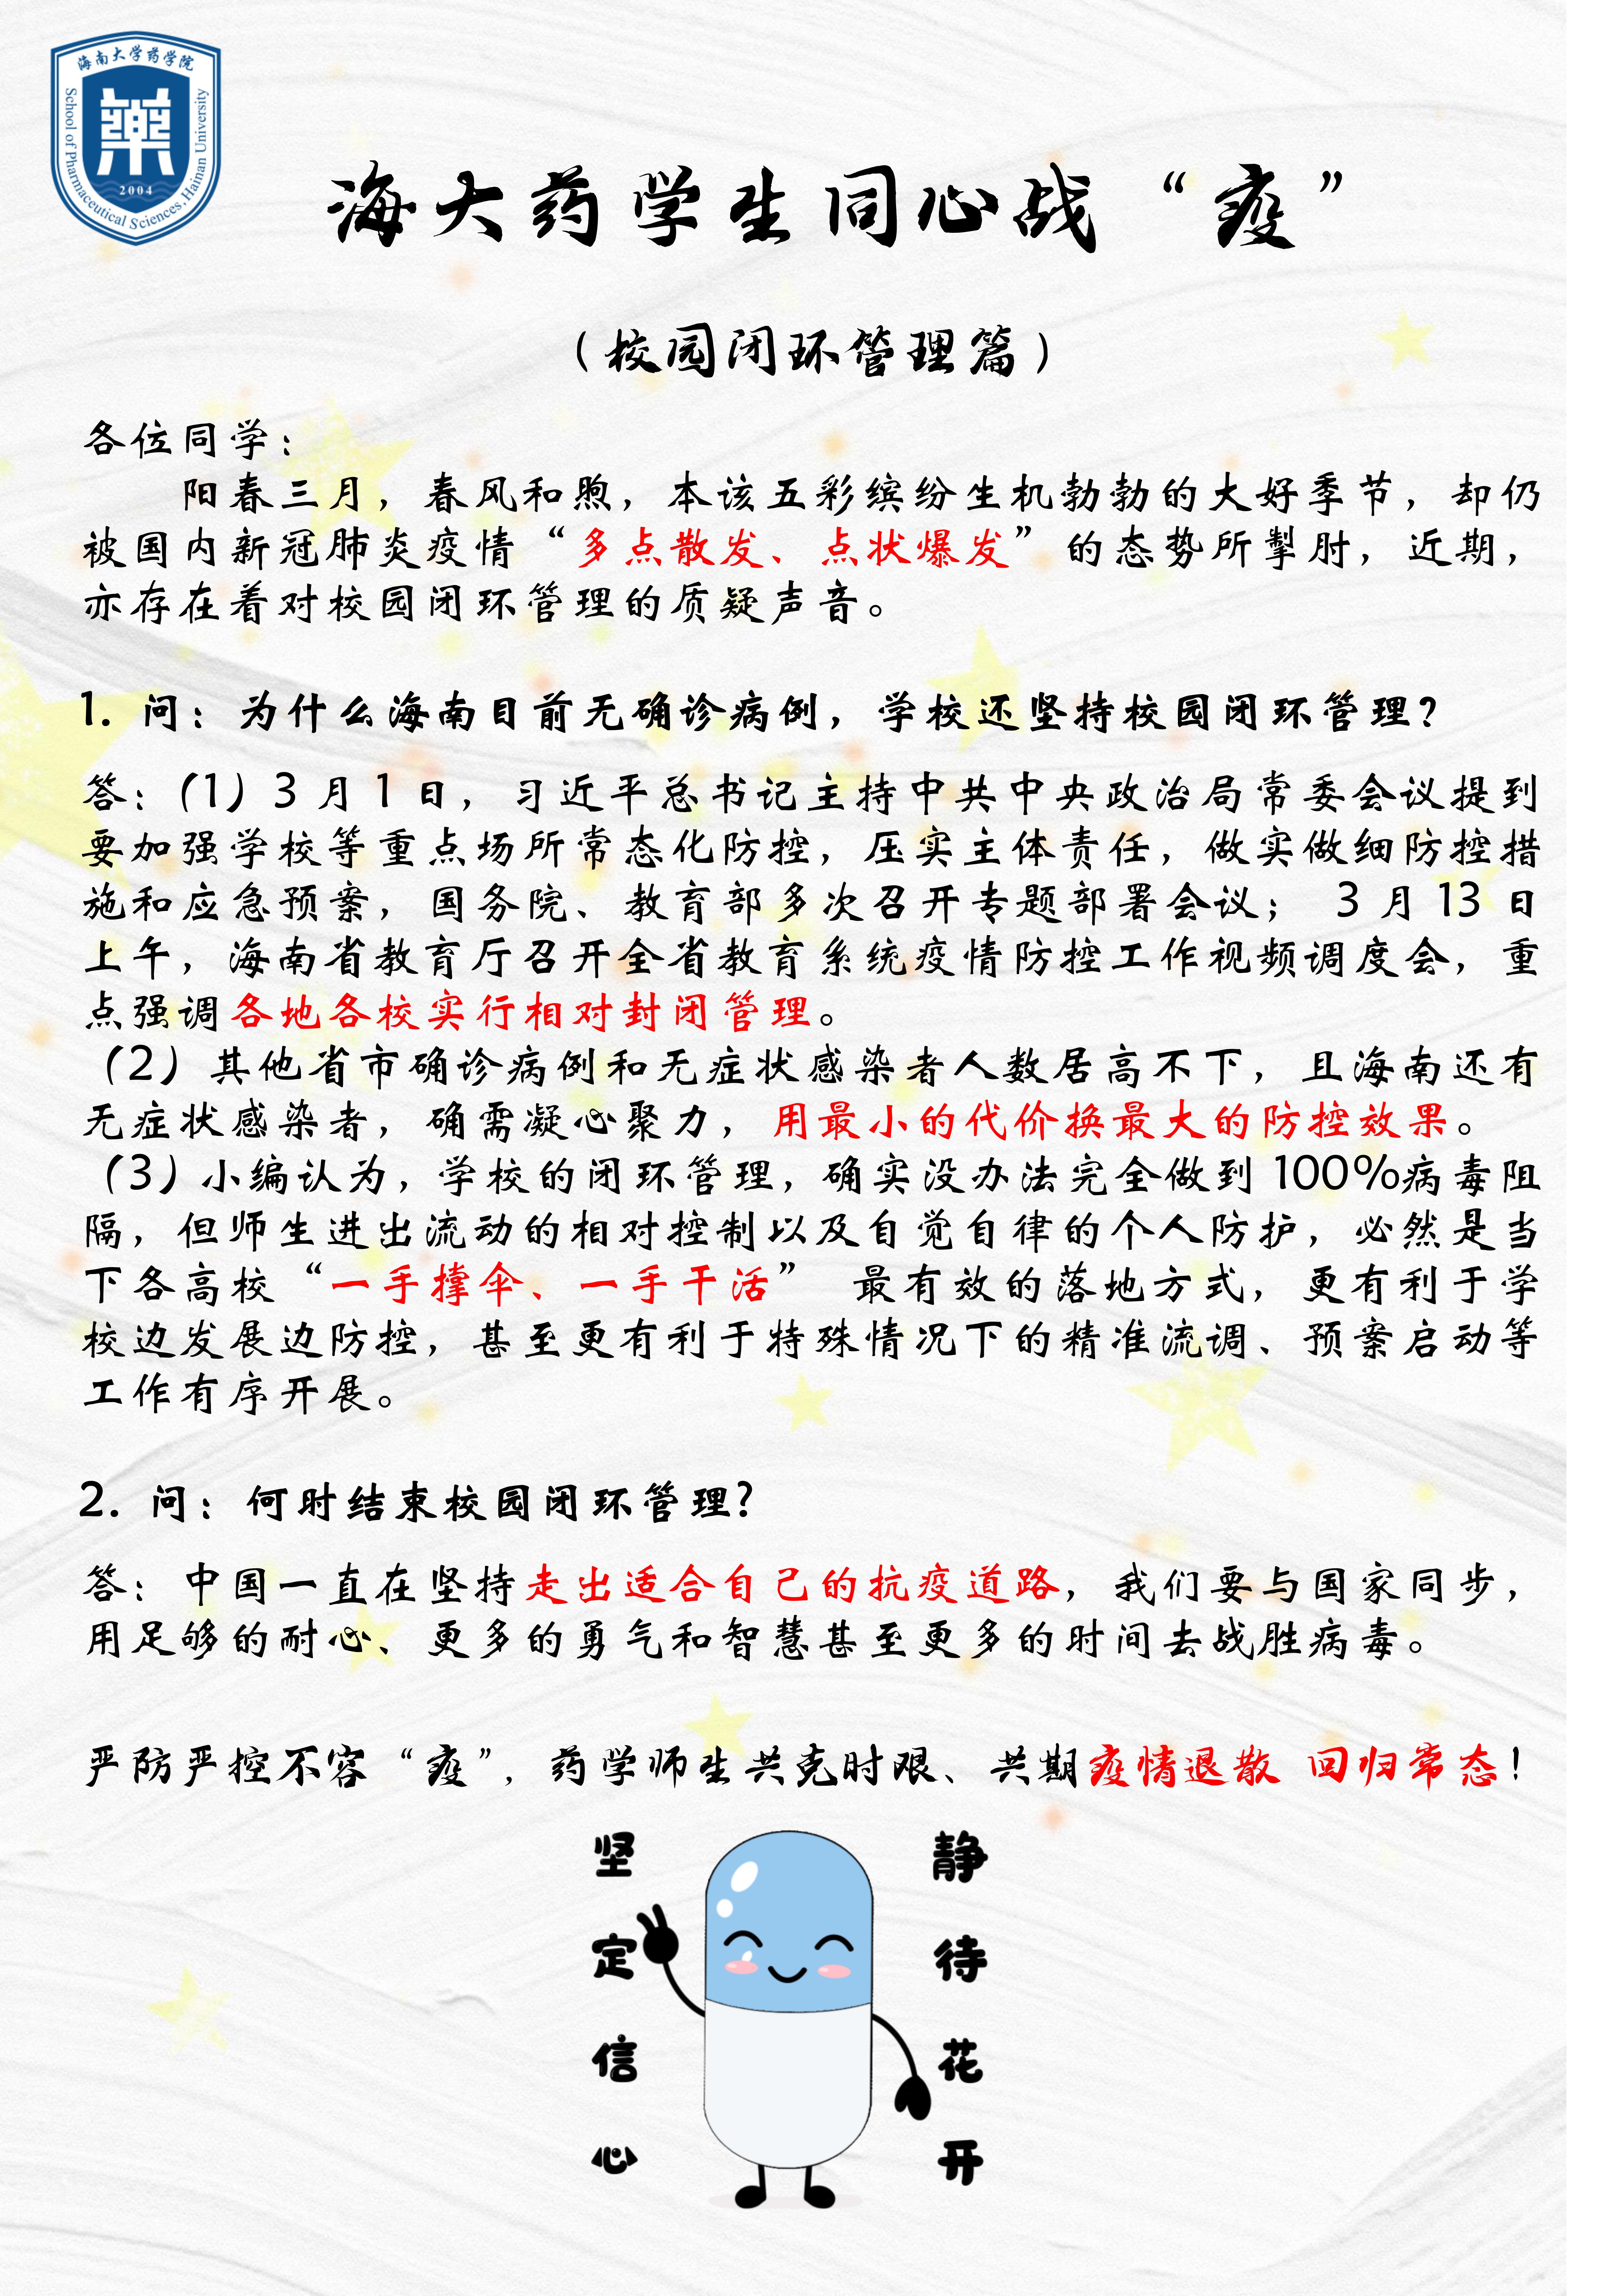 海南大学药学院
School of Pharmaceutical Sciences, Hainan University
藥
2004
海大药学生同心战“疫”
（校园闭环管理篇）
各位同学：
阳春三月，春风和煦，本该五彩缤纷生机勃勃的大好季节，却仍
被国内新冠肺炎疫情“多点散发、点状爆发”的态势所掣肘，近期，
亦存在着对校园闭环管理的质疑声音。
1. 问：为什么海南目前无确诊病例，学校还坚持校园闭环管理？
答：（1）3 月 1 日，习近平总书记主持中共中央政治局常委会议提到
要加强学校等重点场所常态化防控，压实主体责任，做实做细防控措
施和应急预案，国务院、教育部多次召开专题部署会议； 3 月 13 日
上午，海南省教育厅召开全省教育系统疫情防控工作视频调度会，重
点强调各地各校实行相对封闭管理。
（2）其他省市确诊病例和无症状感染者人数居高不下，且海南还有
无症状感染者，确需凝心聚力，用最小的代价换最大的防控效果。
（3）小编认为，学校的闭环管理，确实没办法完全做到 100%病毒阻
隔，但师生进出流动的相对控制以及自觉自律的个人防护，必然是当
下各高校“一手撑伞、一手干活” 最有效的落地方式，更有利于学
校边发展边防控，甚至更有利于特殊情况下的精准流调、预案启动等
工作有序开展。
2. 问：何时结束校园闭环管理?
答：中国一直在坚持走出适合自己的抗疫道路，我们要与国家同步，
用足够的耐心、更多的勇气和智慧甚至更多的时间去战胜病毒。
严防严控不容“疫”，药学师生共克时艰、共期疫情退散 回归常态！
坚定信心
静待花开